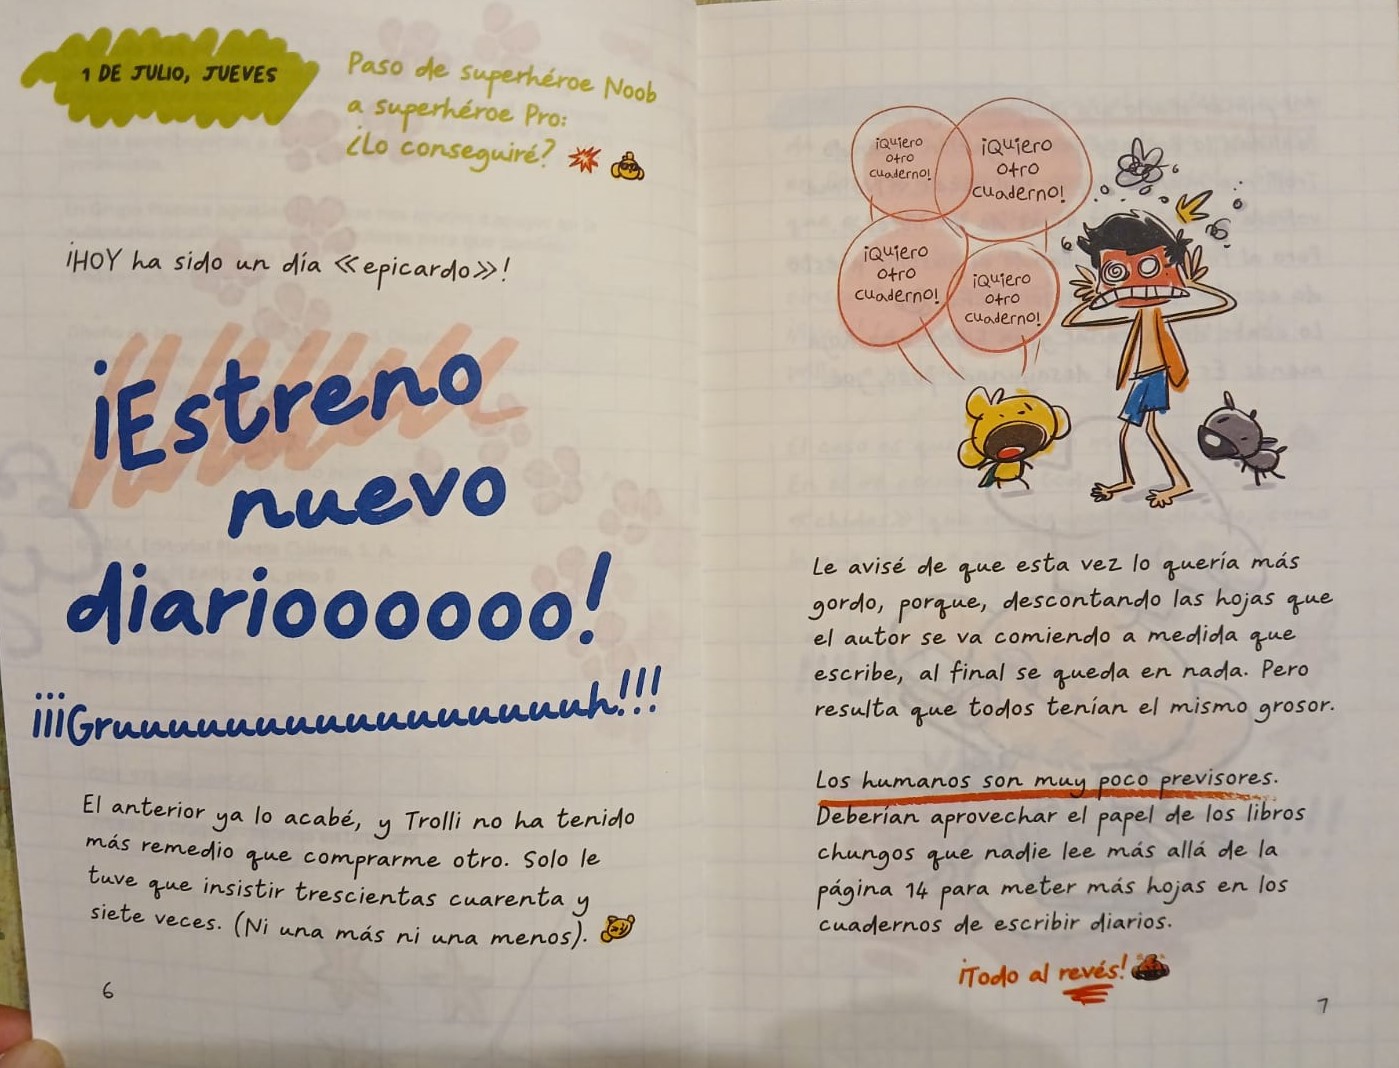 1 DE JULIO, JUEVES
Paso de superhéroe Noob
a superhéroe Pro:
¿Lo conseguiré?
¡HOY ha sido un día «epicardo»!
¡Estreno
nuevo
diarioooooo!
¡¡¡Gruuuuuuuuuuuuuuuuuh!!!
El anterior ya lo acabé, y Trolli no ha tenido
más remedio que comprarme otro. Solo le
tuve que insistir trescientas cuarenta y
siete veces. (Ni una más ni una menos).
6
¡Quiero
otro
cuaderno!
¡Quiero
otro
cuaderno!
¡Quiero
otro
cuaderno!
¡Quiero
otro
cuaderno!
Le avisé de que esta vez lo quería más
gordo, porque, descontando las hojas que
el autor se va comiendo a medida que
escribe, al final se queda en nada. Pero
resulta que todos tenían el mismo grosor.
Los humanos son muy poco previsores.
Deberían aprovechar el papel de los libros
chungos que nadie lee más allá de la
página 14 para meter más hojas en los
cuadernos de escribir diarios.
¡Todo al revés!
7